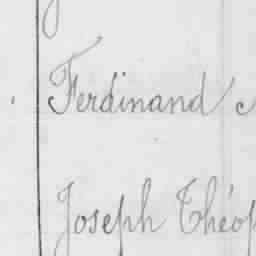 Ferdinand
Joseph Théop